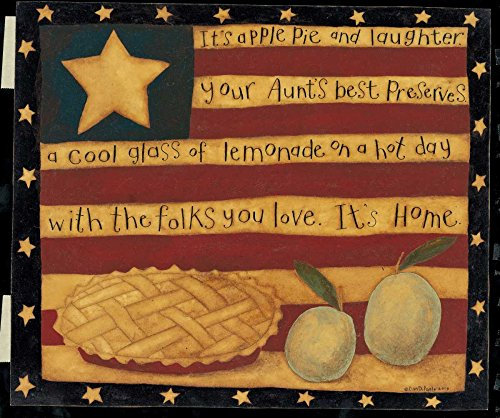 It's apple Pie and laughter.
your Aunt's best Preserves.
a cool glass of lemonade on a hot day
with the folks you love. It's Home.